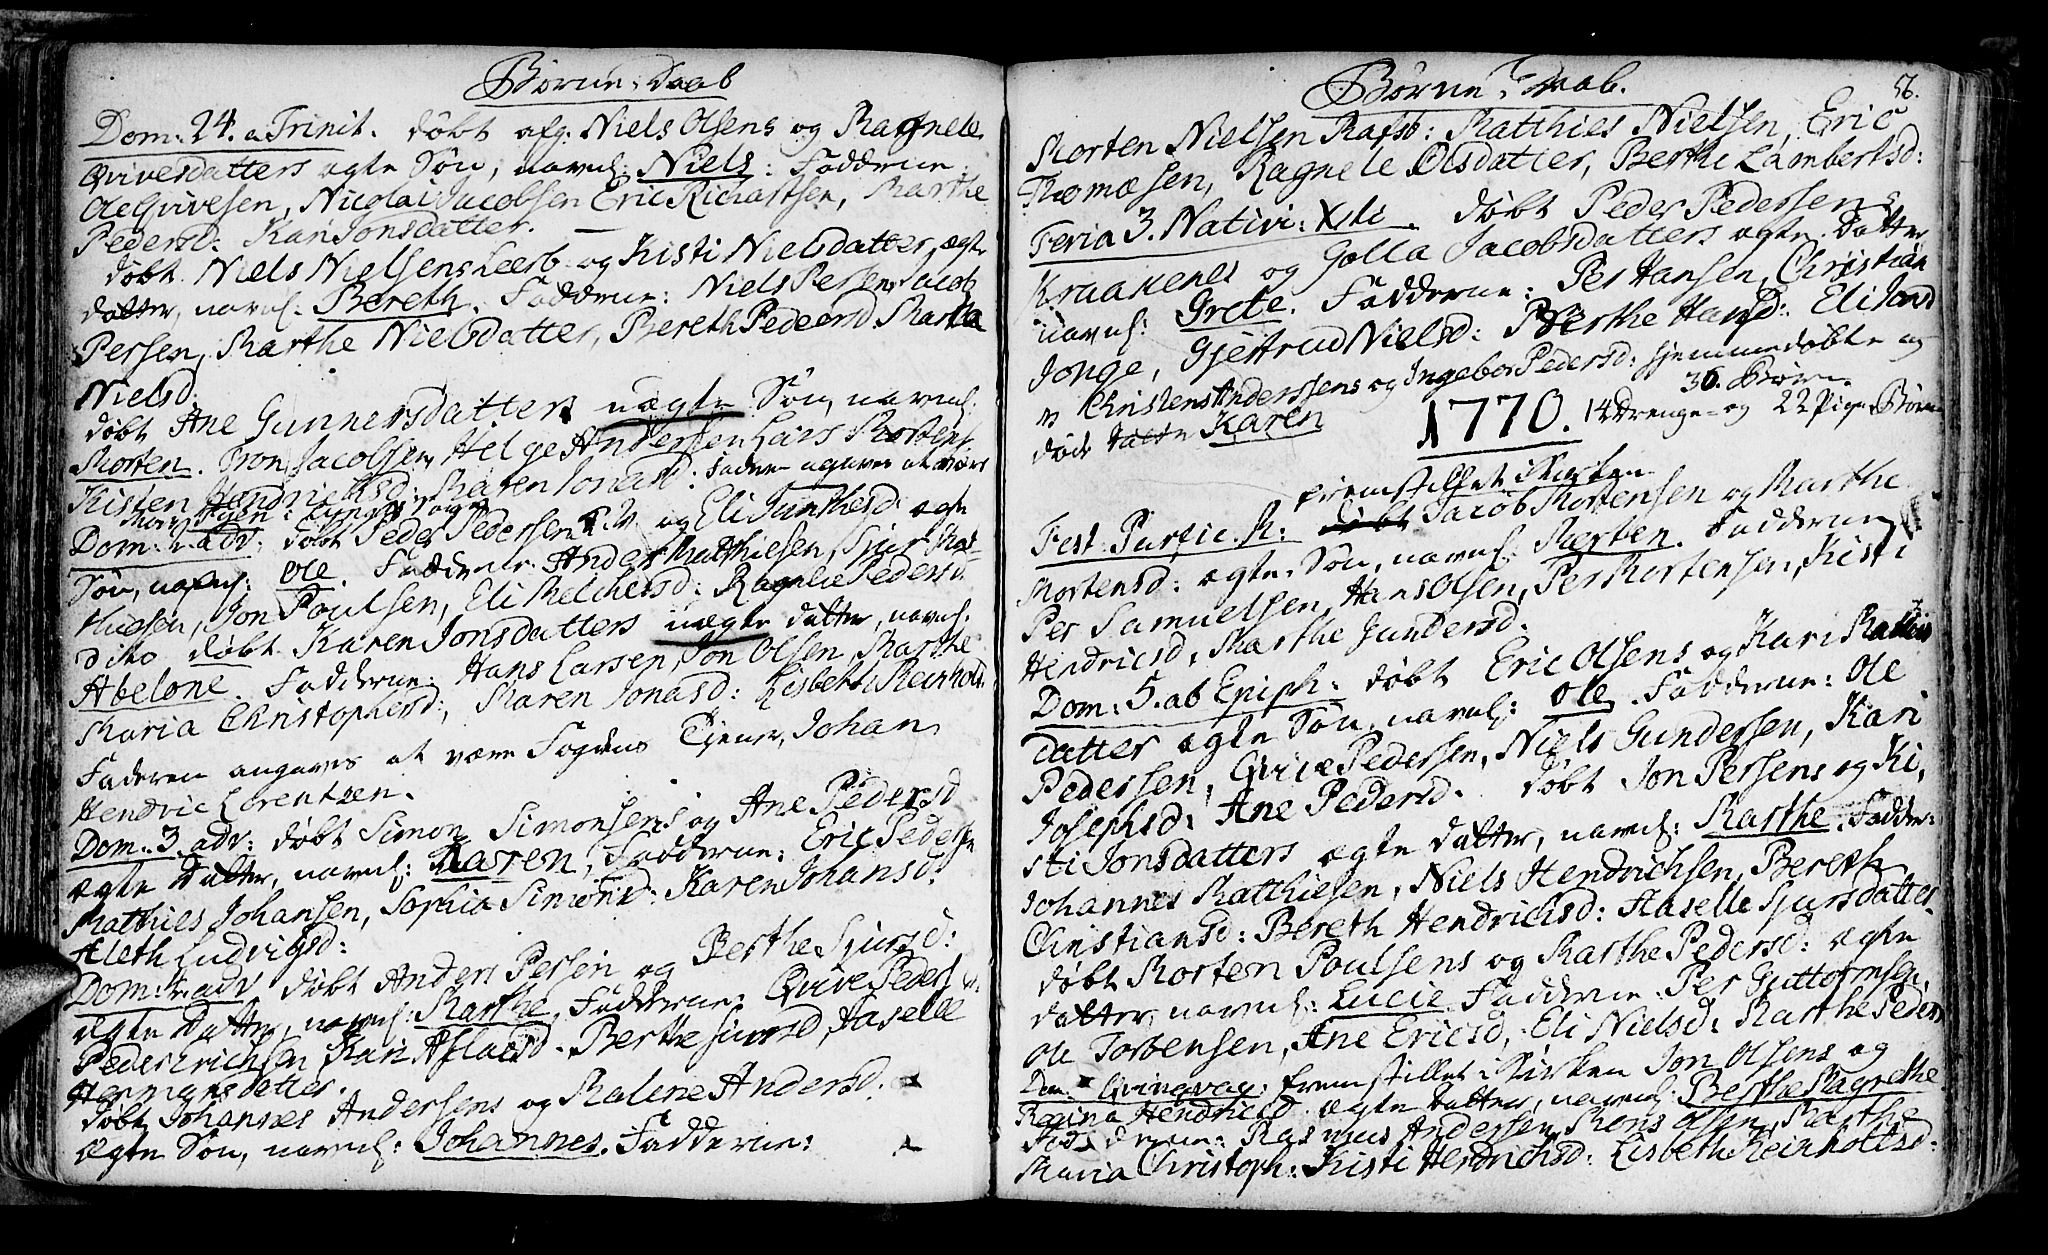 Børne-Daab
Dom: 24. a Trinit. døbt afg: Niels Olsens og Ragnele
Qvivesdatters ægte Søn, navnl: Niels: Fadderne
Ole Qvivesen, Nicolai Jacobsen Eric Richartsen, Marthe
Pedersd. Kari Jonsdatter.
døbt Niels Nielsens Leerb og Kisti Nielsdatter, ægte
datter, navnl. Bereth. Fadderne: Niels Persen Jacob
Persen, Marthe Nielsdatter, Bereth Pedersd Martha
Nielsd.
døbt Ane Gunnersdatters uægte Søn, navnl:
Morten. Tron Jacobsen, Helge Andersen Lars Mortens
Kisten Hendrichsd: Maren Jonasd: Faderen angaves at være
Dom: 2. adv: døbt Peder Pedersen og Eli Junthesd: ægte
Søn, navnl: Ole. Fadderne: Anders Matthiesen, Sjur Mat-
thiesen, Jon Poulsen, Eli Melchersd: Ragnele Pedersd.
Dito døbt Karen Jonsdatters uægte datter, navnl:
Abelone. Fadderne: Hans Larsen, Jon Olsen, Marthe
Maria Christophersd:, Maren Jonasd: Lisbeth Reinholds
Faderen angaves at være Fogdens Tjener, Johan
Hendric Lorentzen.
Dom: 3. adv: døbt Simon Simonsens og Ane Pedersd
ægte datter, navnl: Karen, Fadderne: Eric Peders
Matthies Johansen, Sophia Simonsd: Karen Johansd:
Aleth Ludvigsd:
Dom: 4. adv døbt Anders Persen og Berthe Sjursd:
ægte datter, navnl. Marthe, Fadderne: Qvive Peders
Peder Erichsen, Kari Aslacsd. Berthe Sjursd, Aselle
Hermansdatter.
døbt Johannes Andersens og Malene Andersd:
ægte Søn, navnl: Johannes. Fadderne:
Børne-Daab. 56.
Morten Nielsen Matthies Nielsen, Eric
Thomæsen, Ragnele Olsdatter, Berthe Lambertsd:
Feria 3. Nativi: Xsti. døbt Peder Pedersens
Kraakenes og Golla Jacobsdatters ægte datter
navnl: Grete. Fadderne: Per Hansen, Christian
Jonge, Gjertrud Nielsd: Berthe Hansd: Eli Jonsd
Christens Anderssens og Ingebor Pedersd: hjemmedøbte og
døde datter Karen
36. Børn
1770. 14 Drenge- og 22 Pige Børn
fremstillet i Kirken
Fest: Purific. M: døbt Jacob Mortensen og Marthe
Mortensd: ægte Søn, navnl: Morten. Fadderne
Per Samuelsen, Hans Olsen, Per Mortensen, Kisti
Hendricsd, Marthe Gundersd.
Dom: 5. ab Epiph: døbt Eric Olsens og Kari Mathis
datter ægte Søn, navnl: Ole. Fadderne: Ole
Pedersen, Qvive Pedersen, Niels Gundersen, Kari
Josephsd: Ane Pedersd. døbt Jon Persens og Ki-
sti Jonsdatters ægte datter, navnl: Marthe. Fadder:
Johannes Matthiesen, Niels Hendrichsen, Bereth
Christiansd: Bereth Hendrichsd: Aaselle Sjursdatter
døbt Morten Poulsens og Marthe Pedersd: ægte
datter, navnl: Lucie. Fadderne: Per Guttormsen,
Ole Torbensen, Ane Ericsd, Eli Nielsd: Marthe Peders
Dom: Qvinqvag: fremstillet i Kirken Jon Olsens og
Regina Hendricsd. ægte datter, navnl: Berthe Magrethe
Fadderne: Rasmus Andersen, Mons Olsen, Marthe
Maria Christoph: Kisti Hendrichsd: Lisbeth Reinholtsd: